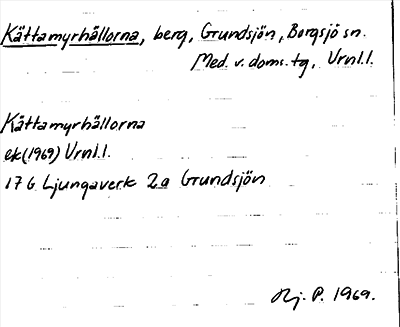 Kättamyrhällorna, berg, Grundsjön, Borgsjö sn.
Med. v. doms. tg, Vrnl.l.
Kättamyrhällorna
ek (1969) Vrnl.l.
17G Ljungaverk 2a Grundsjön
Rj. P. 1969.